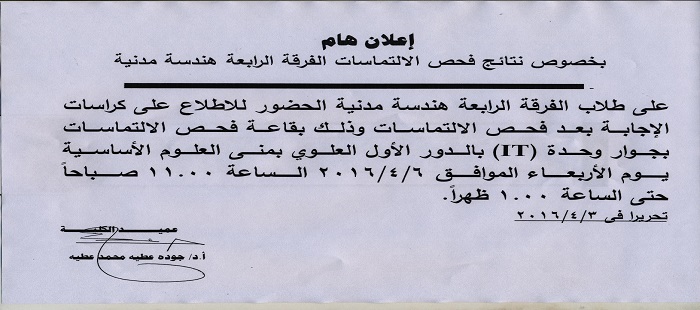 إعلان هام
بخصوص نتائج فحص الالتماسات الفرقة الرابعة هندسة مدنية
على طلاب الفرقة الرابعة هندسة مدنية الحضور للاطلاع على كراسات
الإجابة بعد فحص الالتماسات وذلك بقاعة فحص الالتماسات
بجوار وحدة (IT) بالدور الأول العلوي بمنى العلوم الأساسية
يوم الأربعاء الموافق ٢٠١٦/٤/٦ الساعة ١١.٠٠ صباحاً
حتى الساعة ١.٠٠ ظهراً.
تحريرا فى ٢٠١٦/٤/٣
عميد الكلية
أ.د/ جوده عطيه محمد عطيه